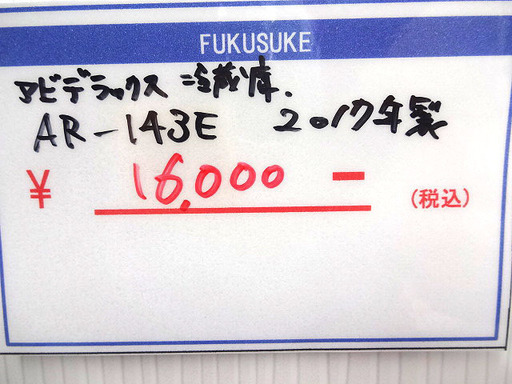 FUKUSUKE
アビデラックス 冷蔵庫.
AR-143E 2017年製
¥ 16,000 - (税込)